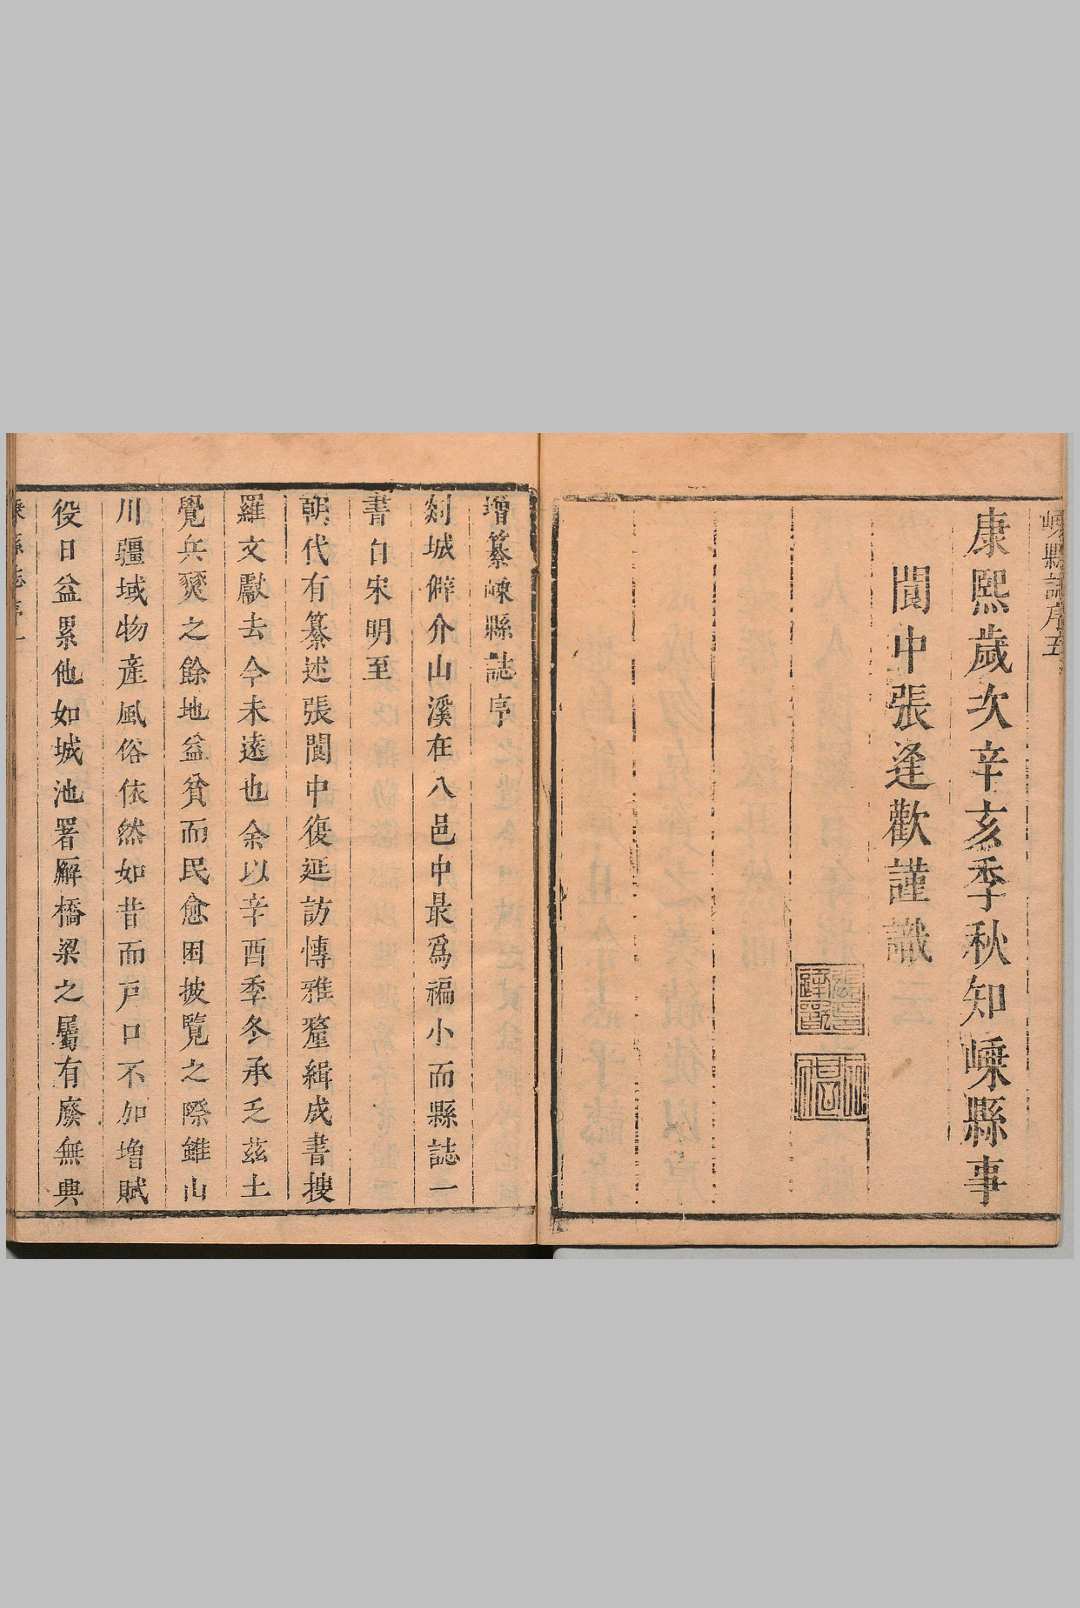 嵊縣誌序五
康熙歲次辛亥季秋知嵊縣事
閬中張逢歡謹識
增纂嵊縣誌序
剡城僻介山溪在八邑中最爲褊小而縣誌一
書自宋明至
朝代有纂述張閬中復延訪博雅釐緝成書搜
羅文獻去今未遠也余以辛酉季冬承乏茲土
覺兵燹之餘地益貧而民愈困披覽之際雖山
川疆域物產風俗依然如昔而戸口不加增賦
役日益累他如城池署廨橋梁之屬有廢無興